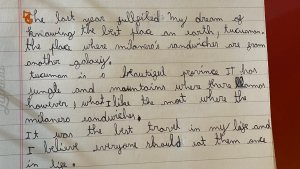 The last year fullfiled my dream of
knowing the best place an earth, tucuman.
the place where milanesa's sandwiches are from
another galaxy.
tucuman is a beautiful province IT has
jungle and mountains where there
however, what I like the most where the
milanesa sandwiches.
It was the best travel in my life and
I believe everyone should eat them once
in life.